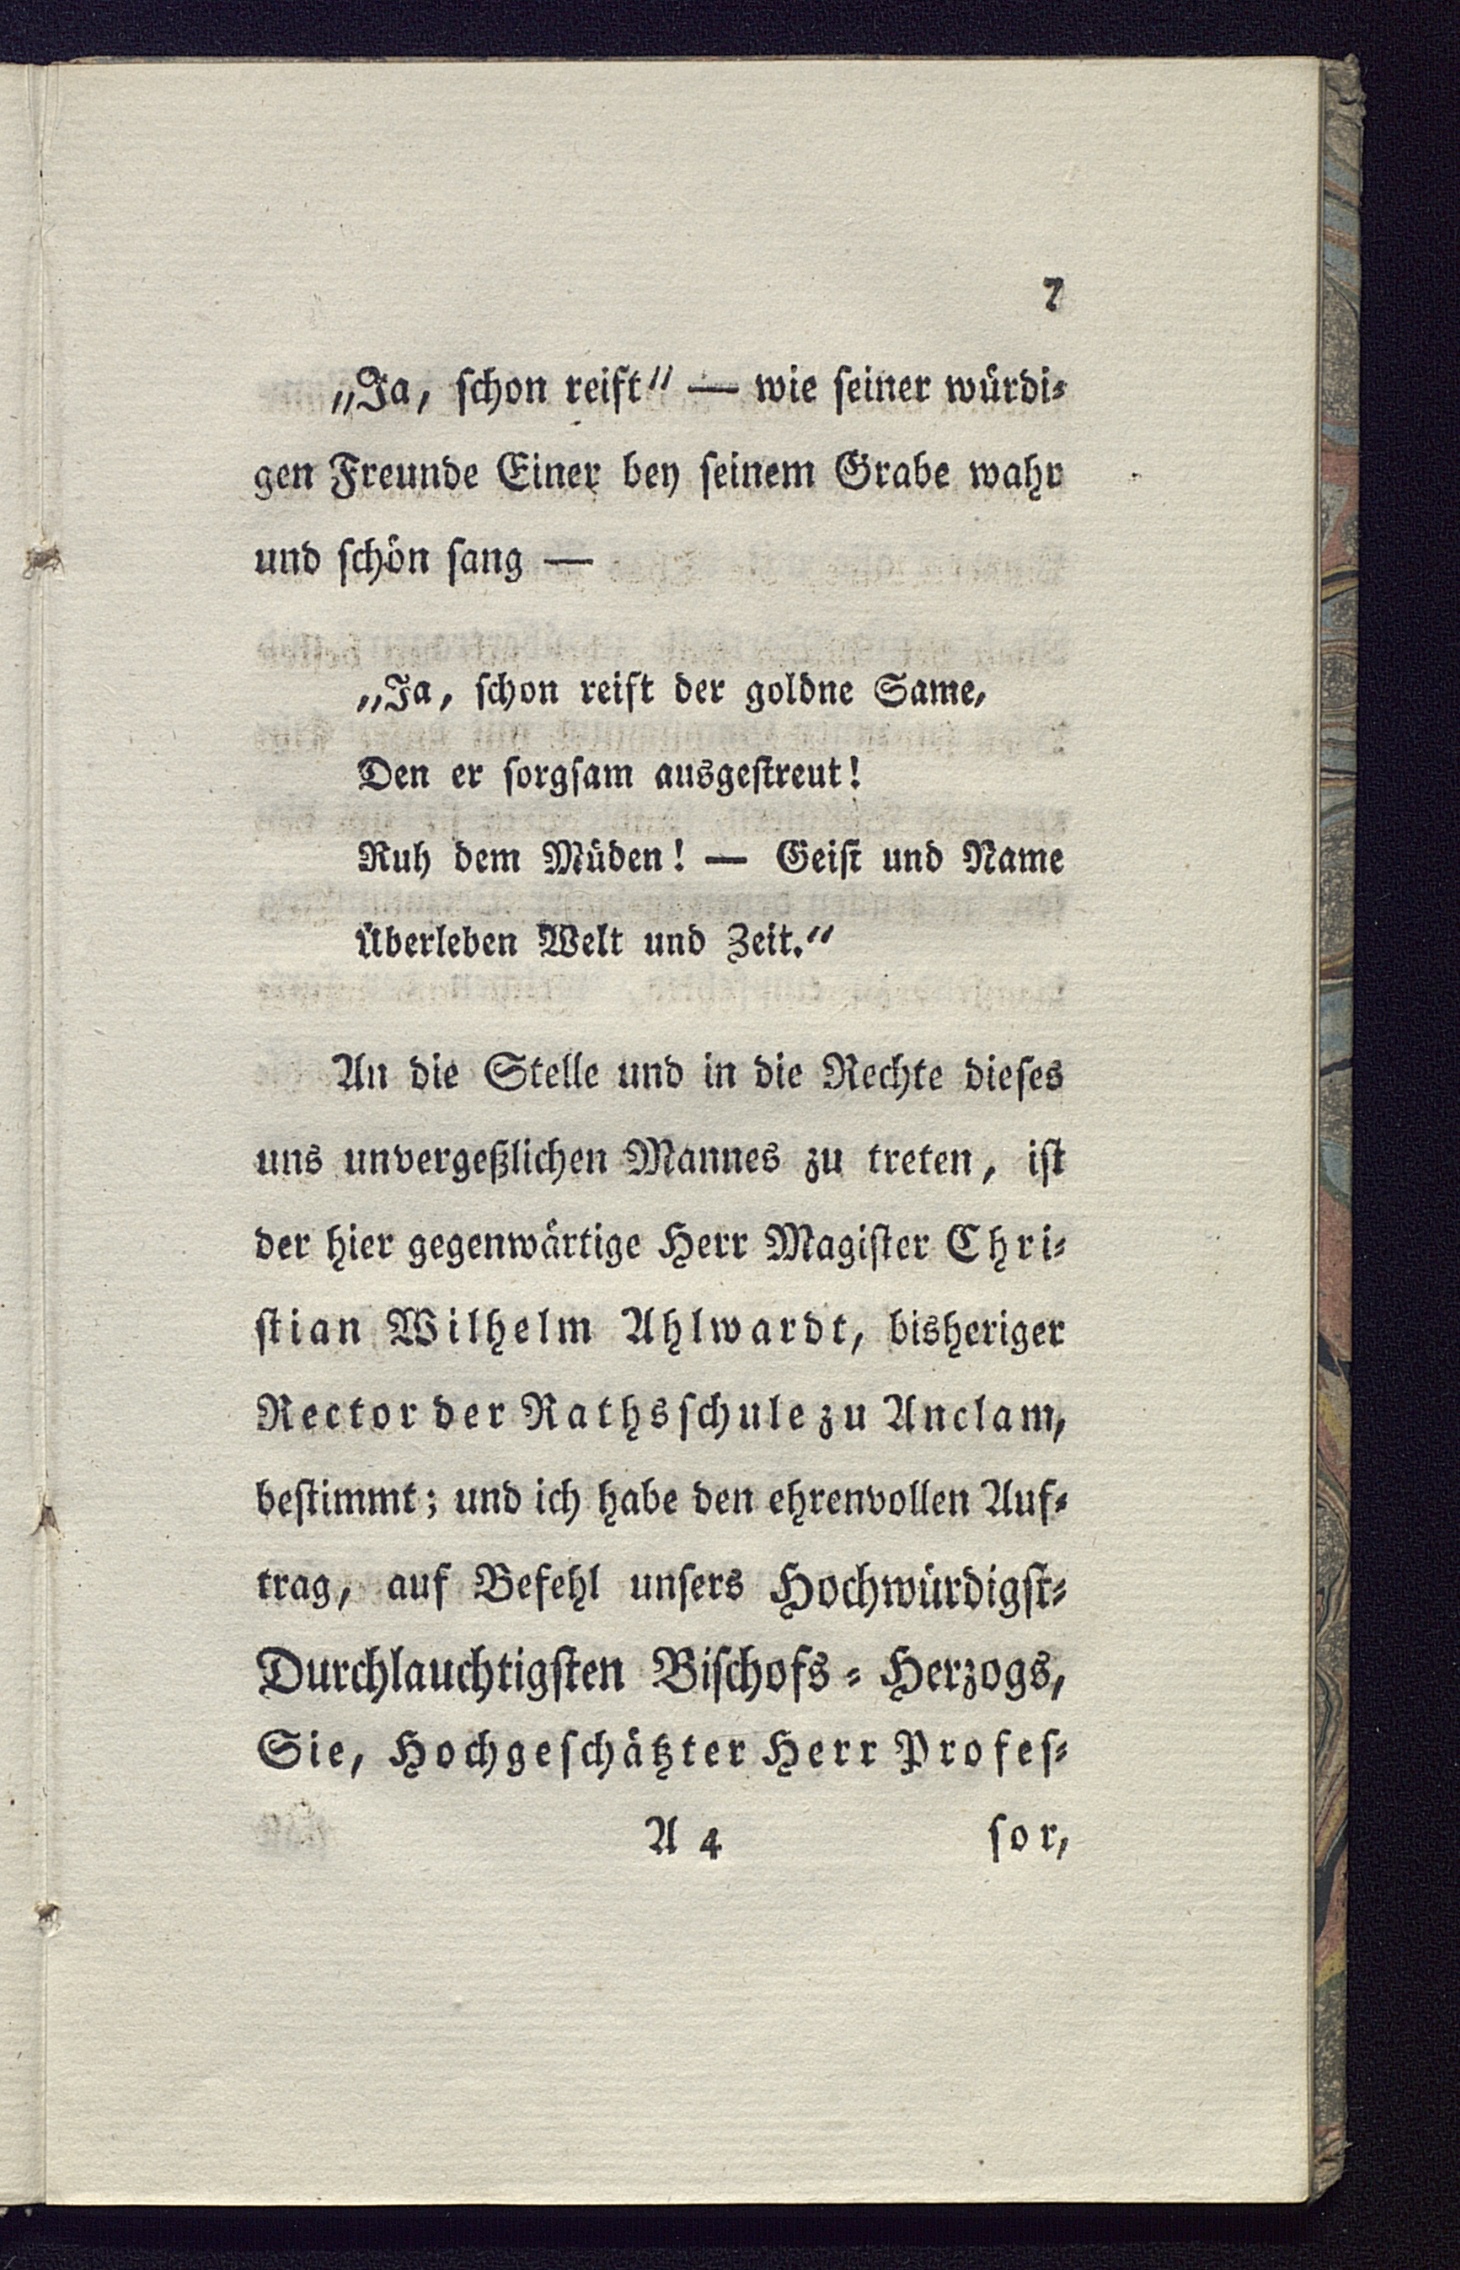 7
„Ja, schon reift“ — wie seiner würdi-
gen Freunde Einer bey seinem Grabe wahr
und schön sang —
„Ja, schon reift der goldne Same,
Den er sorgsam ausgestreut!
Ruh dem Müden! — Geist und Name
Überleben Welt und Zeit.“
An die Stelle und in die Rechte dieses
uns unvergeßlichen Mannes zu treten, ist
der hier gegenwärtige Herr Magister Chri-
stian Wilhelm Ahlwardt, bisheriger
Rector der Rathsschule zu Anclam,
bestimmt; und ich habe den ehrenvollen Auf-
trag, auf Befehl unsers Hochwürdigst-
Durchlauchtigsten Bischofs-Herzogs,
Sie, Hochgeschätzter Herr Profes-
A 4 sor,